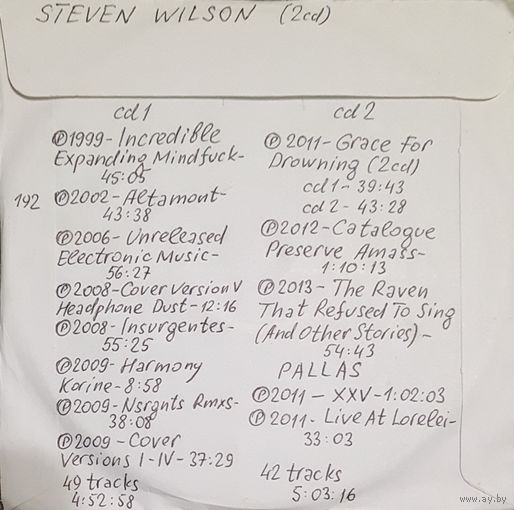 STEVEN WILSON (2cd)
cd1
℗1999-Incredible
Expanding Mindfuck-
45:05
192
℗2002-Altamont-
43:38
℗2006-Unreleased
Electronic Music-
56:27
℗2008-Cover Version V
Headphone Dust-12:16
℗2008-Insurgentes-
55:25
℗2009-Harmony
Korine-8:58
℗2009-Nsrgnts Rmxs-
38:08
℗2009-Cover
Versions I-IV-37:29
49 tracks
4:52:58
cd2
℗2011-Grace For
Drowning (2cd)
cd1-39:43
cd2-43:28
℗2012-Catalogue
Preserve Amass-
1:10:13
℗2013-The Raven
That Refused To Sing
(And Other Stories)-
54:43
PALLAS
℗2011-XXV-1:02:03
℗2011-Live At Lorelei-
33:03
42 tracks
5:03:16
www.ay.by